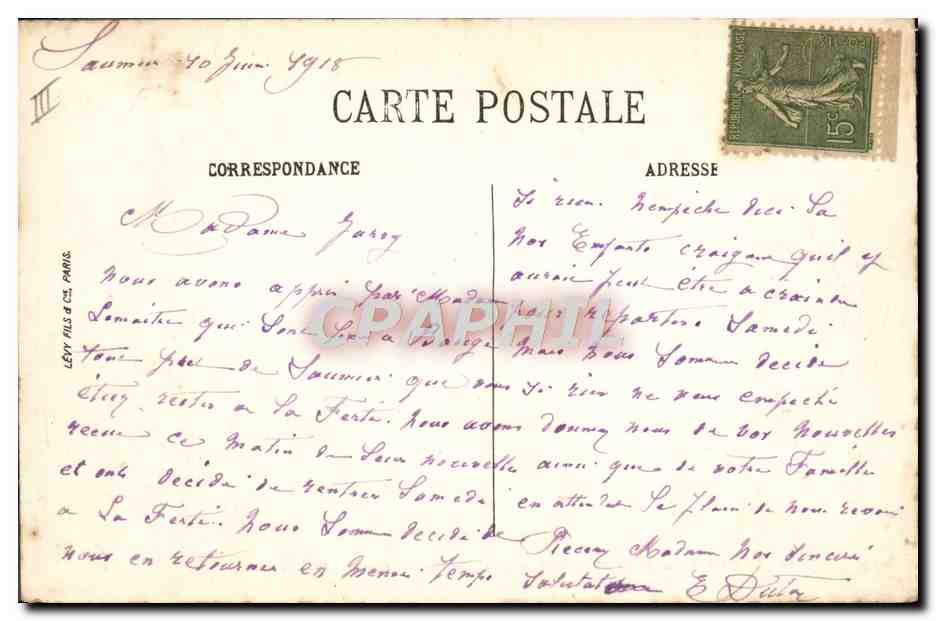 Saumur 10 Juin 1918
III
CARTE POSTALE
RÉPUBLIQUE FRANÇAISE
15c
CORRESPONDANCE
ADRESSE
LÉVY FILS & Cie, PARIS.
CPAPHIL
Madame Jarry
nous avons appris par Madam
Lemaitre qui sont
tout pres de Saumur que vous
étiez restes a La Ferté. Nous avons
recue ce matin de leur nouvelles
et ont décidé de rentrer Samedi
a La Ferté. Nous Somme decidé de
nous en retourner en meme temps
si rien nempeche dici la
nos Enfants craigne quil y
aurai peut être a craindre
pour repartir Samedi
mais nous Somme decidé
si rien ne nous empeché
donnez nous de vos nouvelles
ainsi que de votre Famille
en attendant le plaisir de nous revoir
Recevez Madame nos sincere
salutation E